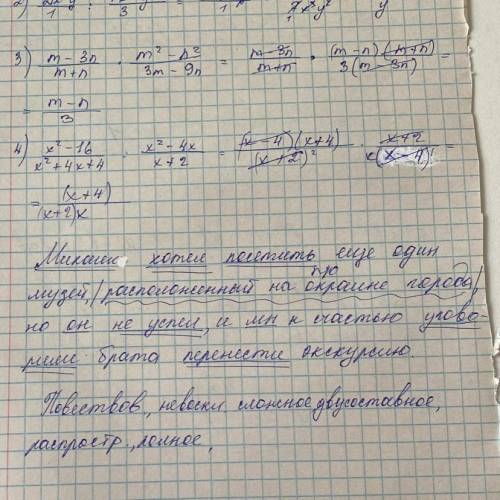 3) (m-3n)/(m+n) · (m²-n²)/(3m-9n) = (m-3n)/(m+n) · (m-n)(m+n)/3(m-3n) =
= (m-n)/3
4) (x²-16)/(x²+4x+4) : (x²-4x)/(x+2) = (x-4)(x+4)/(x+2)² · (x+2)/x(x-4) =
= (x+4)/(x+2)x
Михаил хотел посетить еще один
музей, /расположенный на окраине города/
но он не успел, и мы к счастью угово-
рили брата перенести экскурсию.
Повествов., невоскл. сложное двусоставное,
распростр., полное,